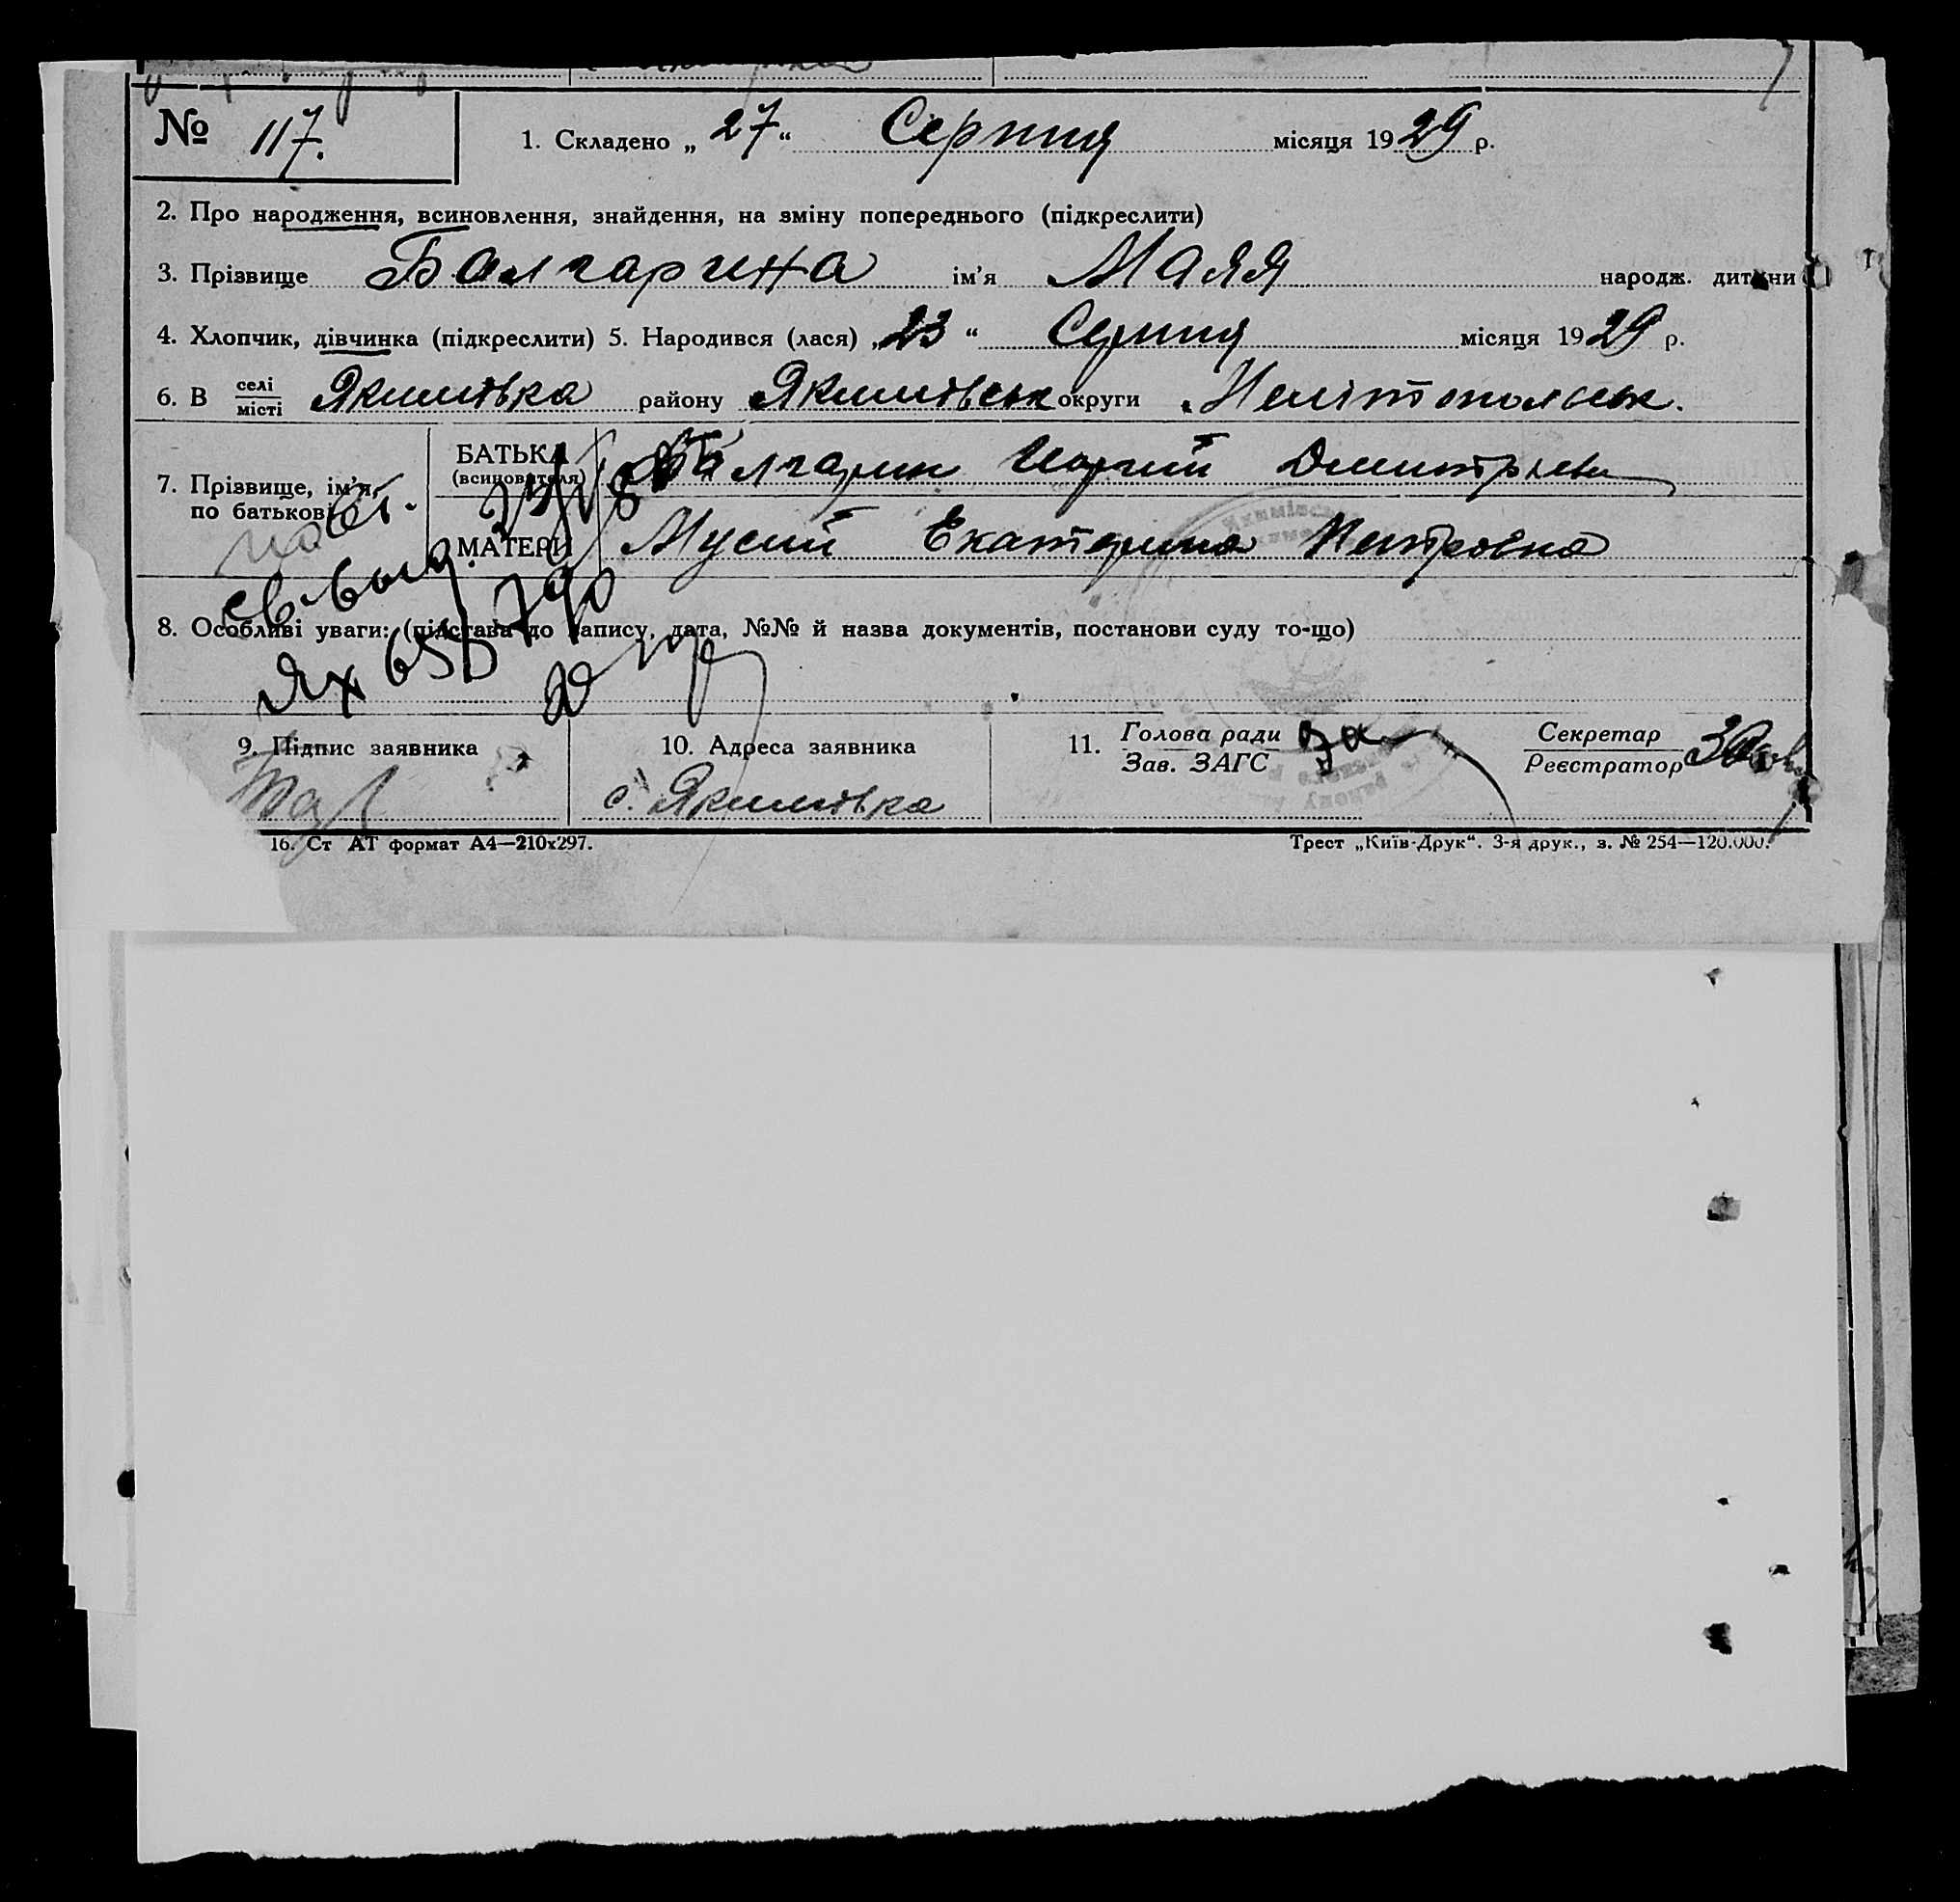 № 117. 1. Складено „ 27 “ Серпня місяця 1929 р.
2. Про народження, всиновлення, знайдення, на зміну попереднього (підкреслити)
3. Прізвище Балгарина ім’я Маяя народж. дитини
4. Хлопчик, дівчинка (підкреслити) 5. Народився (лася) „ 23 “ Серпня місяця 1929 р.
6. В селі місті Якимівка району Якимівськ округи Меліпопольськ.
7. Прізвище, ім’я, по батькові
БАТЬКА (всиновителя) Балгарин Дмитрієви
МАТЕРИ Мусий Екатерина Петровна
повт.
св-во выд.
ЯХ 655790
8. Особливі уваги: (підстава до запису, дата, №№ й назва документів, постанови суду то-що)
9. Підпис заявника
10. Адреса заявника
с. Якимівка
11. Голова ради
Зав. ЗАГС
за
Секретар
Реєстратор
16. Ст АТ формат А4—210х297.
Трест „Київ-Друк“. 3-я друк., з. № 254—120.000.